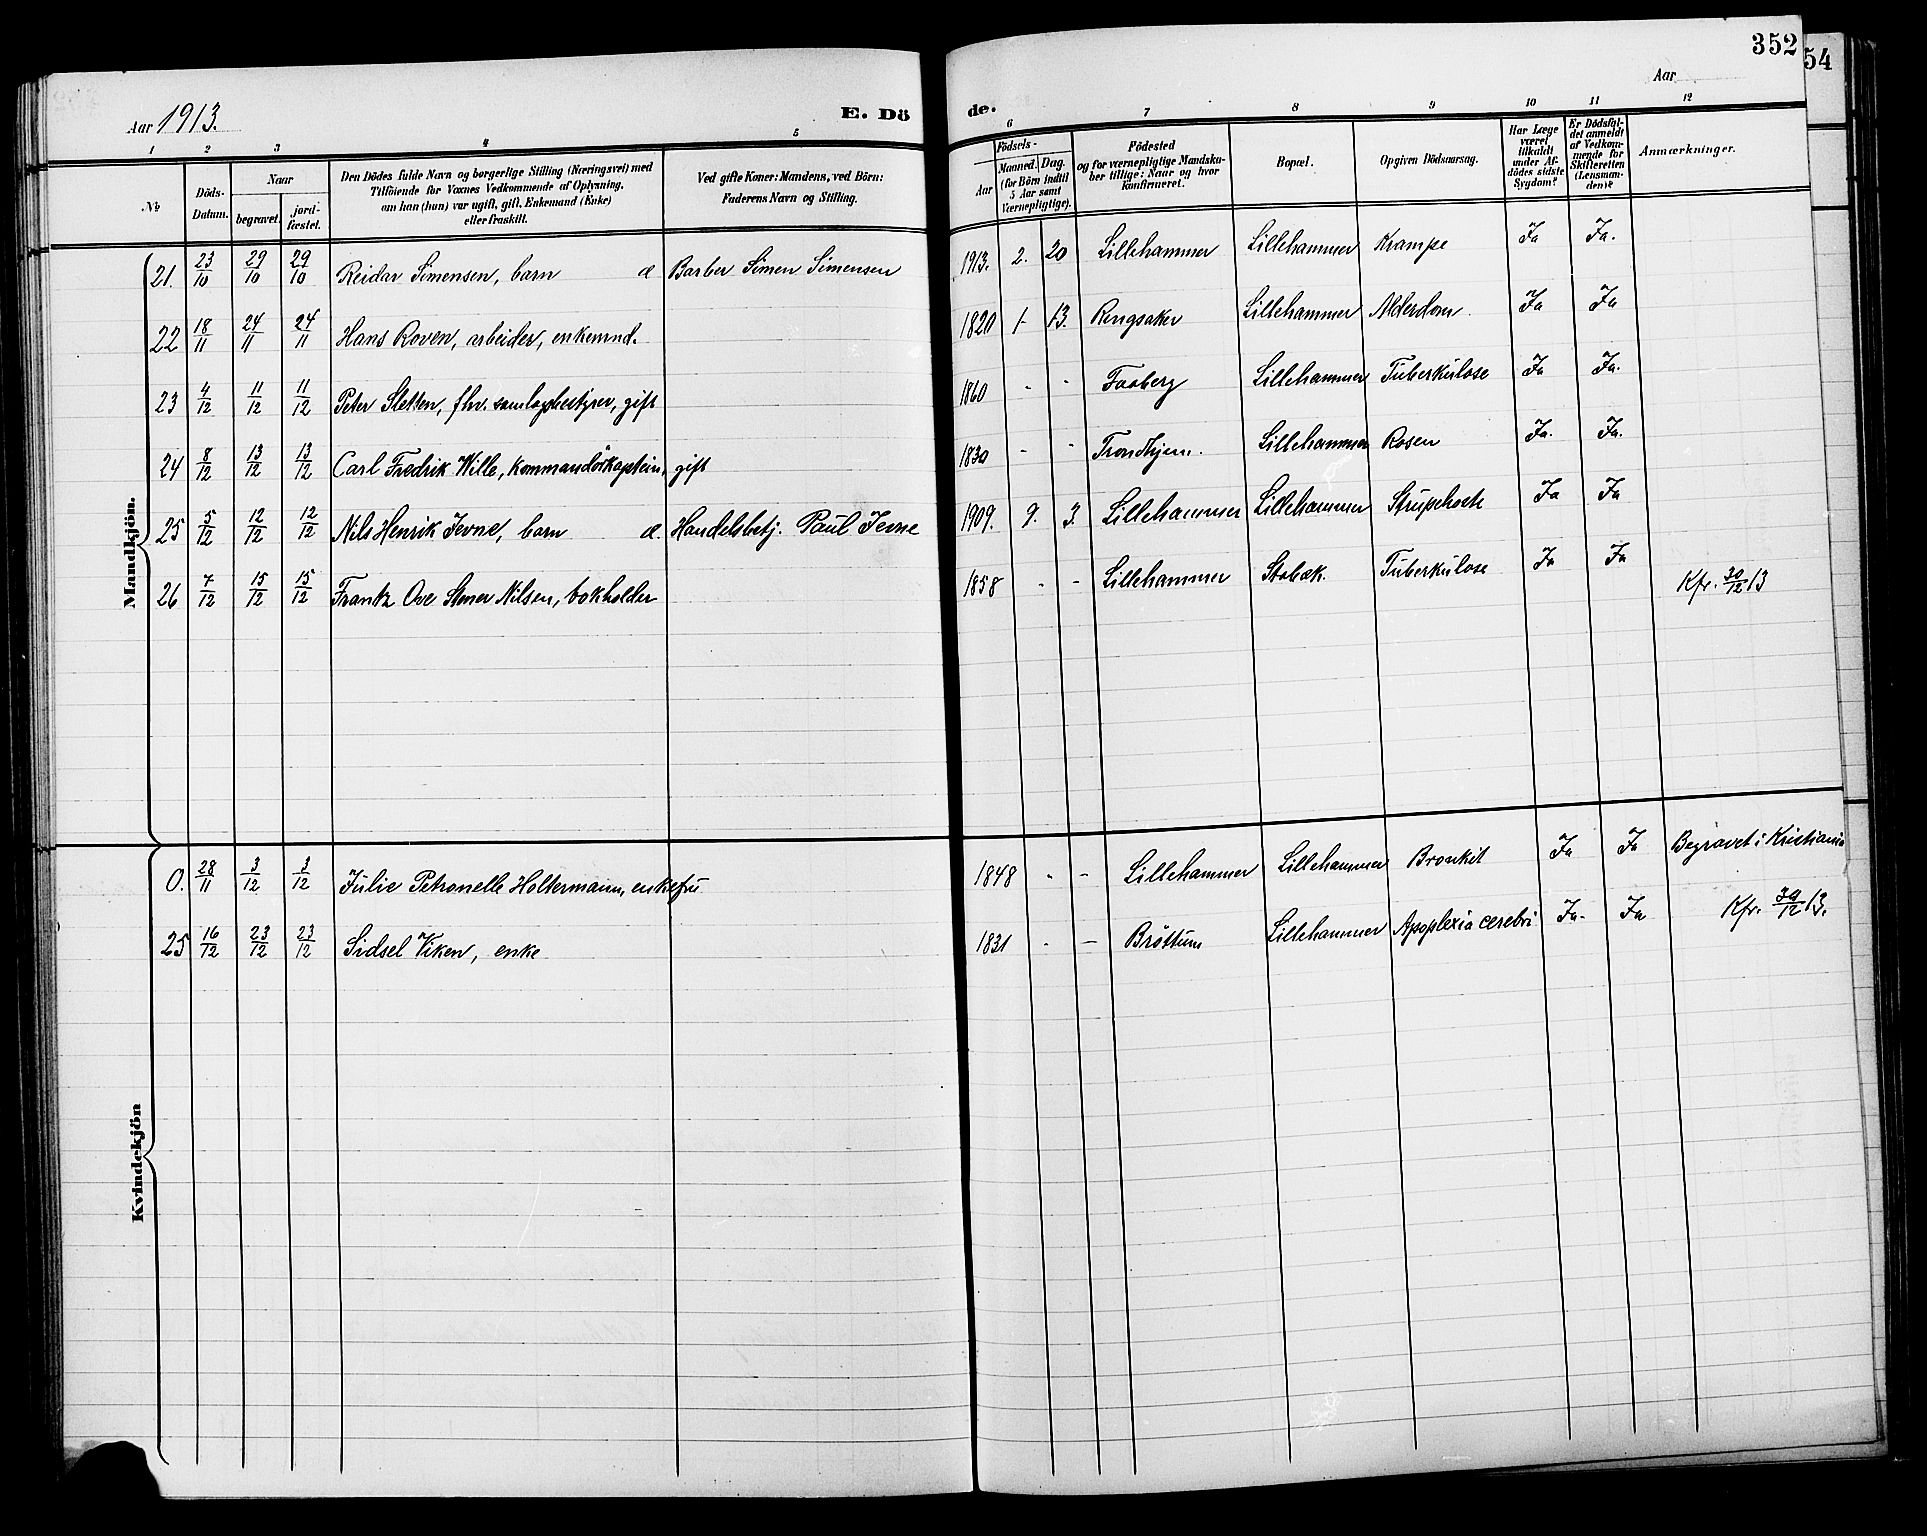 352
54
Aar 1913.
E. Dö
de.
Aar
1 2 3 4 5 6 7 8 9 10 11 12
No
Döds-
Datum.
Naar
begravet.
jord-
fæstet.
Den Dödes fulde Navn og borgerlige Stilling (Næringsvei) med
Tilföiende for Voxnes Vedkommende af Oplysning,
om han (hun) var ugift, gift, Enkemand (Enke)
eller fraskilt.
Ved gifte Koner: Mandens, ved Börn:
Faderens Navn og Stilling.
Födsels-
Aar
Maaned. Dag.
(for Börn indtil
5 Aar samt
Værnepligtige).
Födested
og for værnepligtige Mandska-
ber tillige: Naar og hvor
konfirmeret.
Bopæl.
Opgiven Dödsaarsag.
Har Læge
været
tilkaldt
under Af-
dödes sidste
Sygdom?
Er Dödsfal-
det anmeldt
af Vedkom-
mende for
Skifteretten
(Lensman-
den)?
Anmærkninger.
Mandkjön.
21. 23/10 29/10 29/10 Reidar Simensen, barn æ Barber Simen Simensen 1913. 2. 20 Lillehammer Lillehammer Krampe Ja Ja.
22 18/11 24/11 24/11 Hans Roven, arbeider, enkemnd. 1820 1- 13. Ringsaker Lillehammer Alderdom. Ja Ja
23 4/12 11/12 11/12 Peter Sletten, fhv. samlagsbestyrer, gift 1860 - - Faaberg Lillehammer Tuberkulose Ja Ja.
24 8/12 13/12 13/12 Carl Fredrik Wille, kommandörkaptein, gift 1830 - - Trondhjem. Lillehammer Rosen Ja. Ja.
25 5/12 12/12 12/12 Nils Henrik Jevne, barn æ. Handelsbetj. Paul Jevne 1909. 9. 3. Lillehammer Lillehammer Strupehoste Ja Ja
26 7/12 15/12 15/12 Frantz Ove Stener Nilsen, bokholder 1858 - - Lillehammer Stabæk. Tuberkulose Ja Ja Kfr. 30/12 13
Kvindekjön
0. 28/11 3/12 3/12 Julie Petronelle Holtermann, enkefru 1848 - - Lillehammer Lillehammer Bronkit Ja Ja Begravet i Kristiania
25 16/12 23/12 23/12 Sidsel Viken, enke 1831 - - Bröttum Lillehammer Apoplexia cerebri Ja- Ja Kfr. 30/12 13.